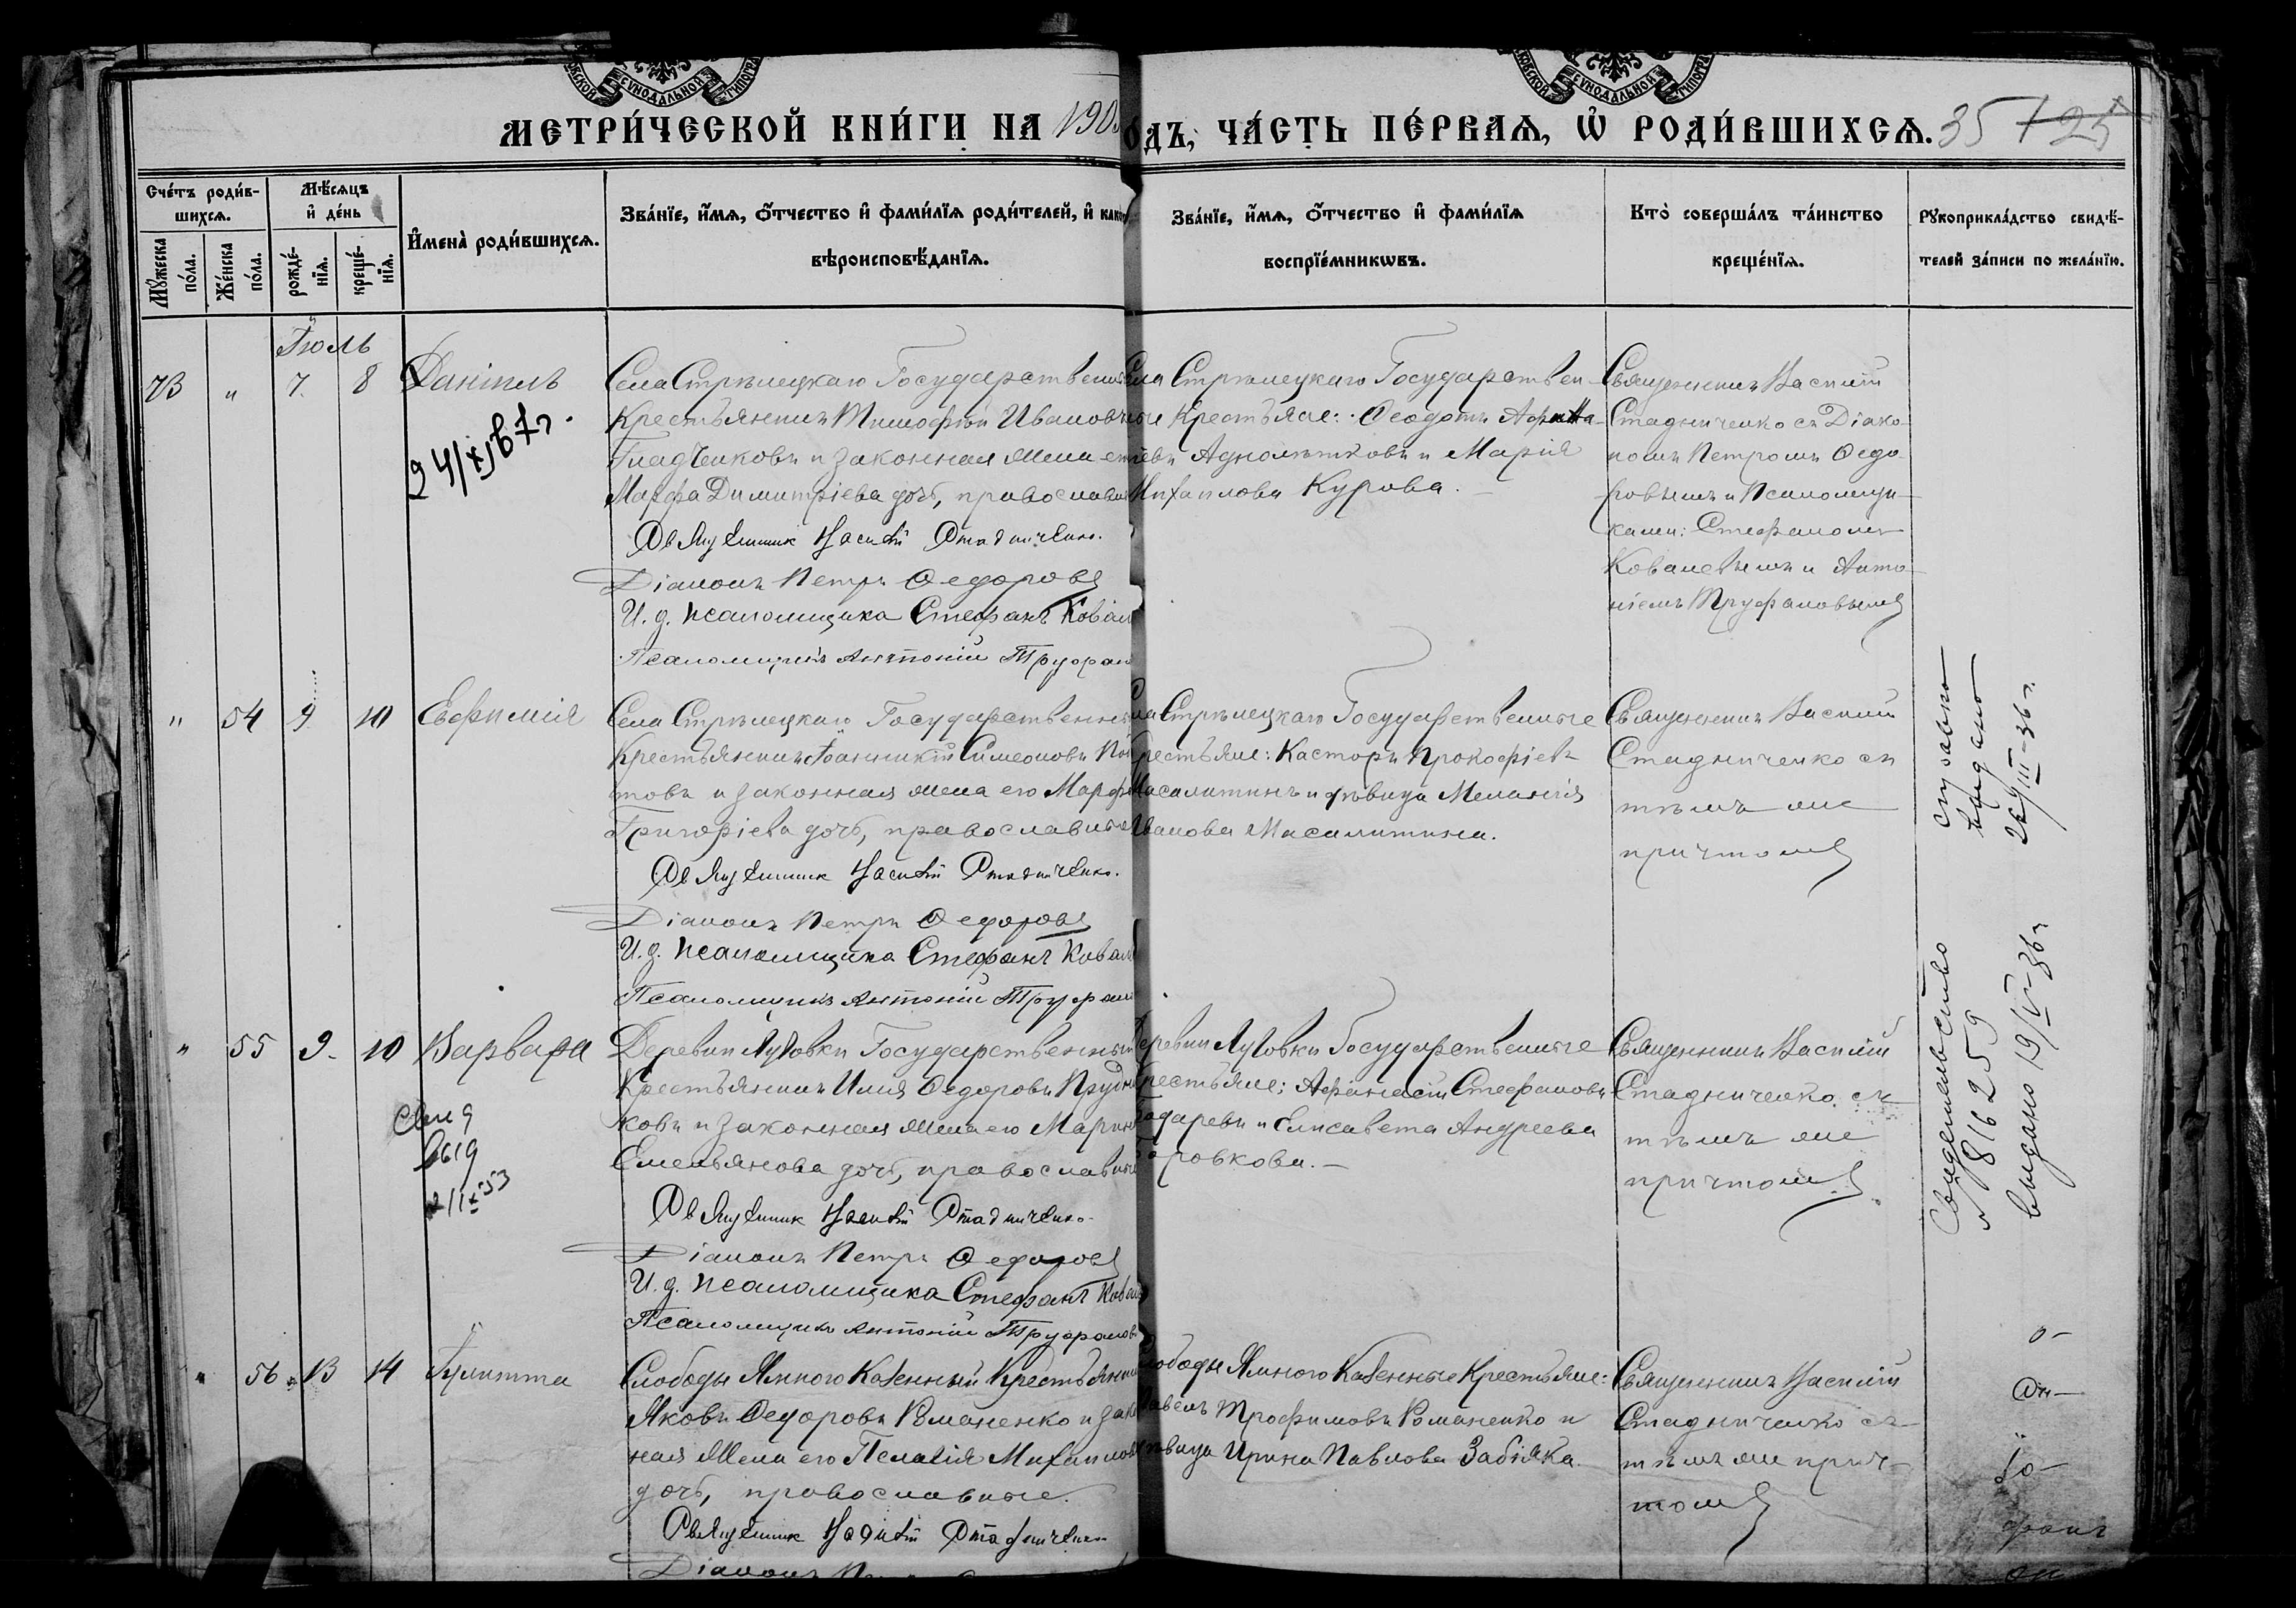 СѴНОДАЛЬНОЙ
СѴНОДАЛЬНОЙ
МЕТРИ́ЧЕСКОЙ КНИ́ГИ НА 190
ОДЪ, ЧА́СТЬ ПЕ́РВАѦ, Ѡ҆ РОДИ́ВШИХСѦ. 35 25
Сче́тъ роди́в-
шихсѧ.
Мꙋ́жеска по́ла.
Же́нска по́ла.
Мѣ́сѧцъ
и҆ де́нь
рожде́-нїѧ.
креще́-нїѧ.
И҆мена̀ роди́вшихсѧ.
Зва́нїе, и҆́мѧ, ѻ҆́тчество и҆ фами́лїѧ роди́телей, и҆ како
вѣроисповѣ́данїѧ.
Зва́нїе, и҆́мѧ, ѻ҆́тчество и҆ фами́лїѧ
воспрїе́мникѡвъ.
Кто̀ соверша́лъ та́инство
креще́нїѧ.
Рꙋкоприкла́дство свидѣ́-
телей за́писи по жела́нїю.
Іюль
73 " 7. 8 Даніилъ
Села Стрѣлецкаго Государствен
Крестьянинъ Тимофей Иванов
Гладченковъ и законная жена е
Марфа Димитріева дочь, православн
Священник Василій Стадниченко.
Діаконъ Петръ Ѳедоровъ
И. д. псаломщика Стефанъ Ковал
Псаломщикъ Антоній Труфан
Стрѣлецкаго Государствен-
Крестьяне: Ѳеодотъ Афана-
Адноленковъ и Марія
Михаилова Курова.
Священникъ Василій
Стадниченко съ Діако-
номъ Петромъ Ѳедо-
ровымъ и Псаломщи-
ками: Стефаномъ
Ковалевымъ и Анто-
ніемъ Труфановымъ
" 54 9 10 Евфимія
Села Стрѣлецкаго Государственн
Крестьянинъ Іоанникій Симеоновъ
товъ и законная жена его Марф
Григоріева дочь, православн
Священник Василій Стадниченко.
Діаконъ Петръ Ѳедоровъ
И. д. псаломщика Стефанъ Ковал
Псаломщикъ Антоній Труфан
Стрѣлецкаго Государственные
Крестьяне: Касторъ Прокофіевъ
Масалитинъ и дѣвица Меланія
Иванова Масалитина.
Священникъ Василій
Стадниченко съ
тѣмъ же
причтомъ
справка
выдано
26/III-36 г.
" 55 9. 10 Варвара
свид
выд
2/IX 53
Деревни Луговки Государственный
Крестьянинъ Илія Ѳедоровъ Прудн
ковъ и законная жена его Марин
Емельянова дочь, православные
Священник Василій Стадниченко.
Діаконъ Петръ Ѳедоровъ
И. д. псаломщика Стефанъ Ковал
Псаломщикъ Антоній Труфанов
Деревни Луговки Государственные
Крестьяне: Афанасій Стефановъ
и Елисавета Андреева
Священникъ Василій
Стадниченко съ
тѣмъ же
причтомъ.
Свидетельство
№ 816259
выдано 19/V-36 г.
" 56 13 14 Іулитта
Слободы Ямного Казенный Крестьянин
Яковъ Ѳедоровъ Романенко и зак
ная жена его Пелагія Михаилов
дочь, православные.
Священник Василій Стадниченко
Діаконъ
Слободы Ямного Казенные Крестьяне:
Павелъ Трофимовъ Романенко и
дѣвица Ирина Павлова Забіяка.
Священникъ Василій
Стадниченко съ
тѣмъ же прич-
томъ